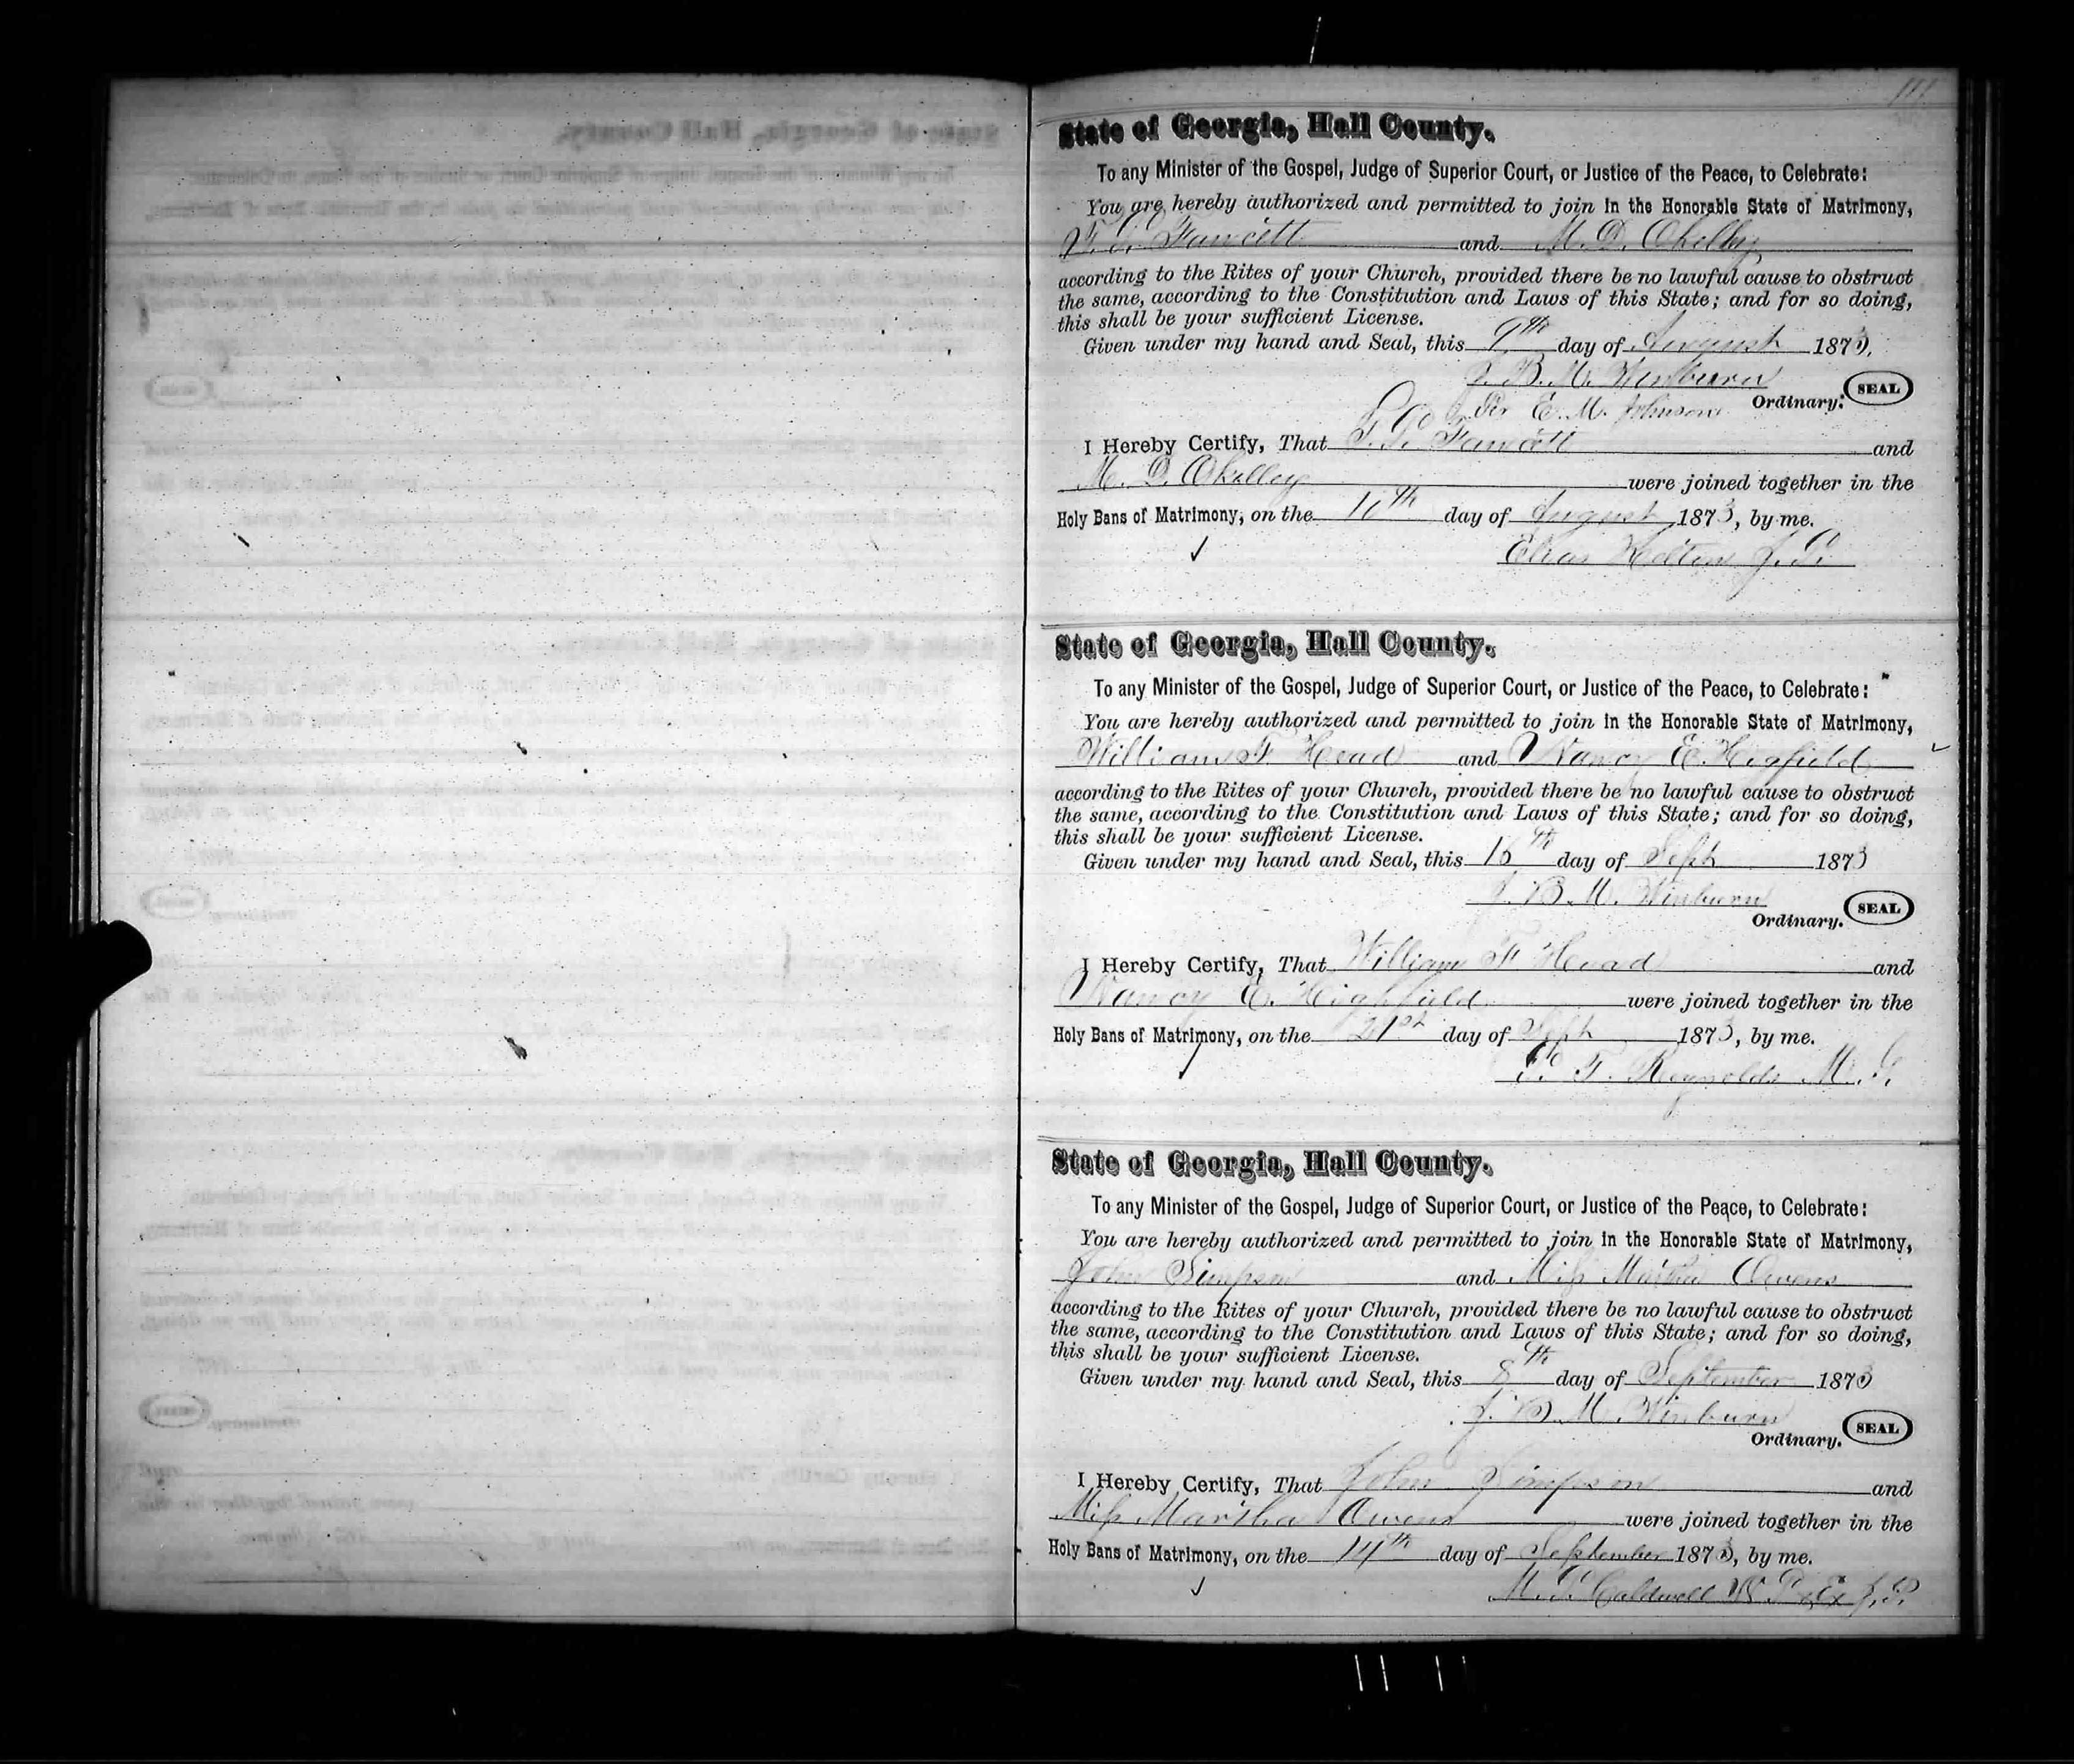 111
State of Georgia, Hall County.
To any Minister of the Gospel, Judge of Superior Court, or Justice of the Peace, to Celebrate:
You are hereby authorized and permitted to join in the Honorable State of Matrimony,
Fawcett and M. D. Okelley
according to the Rites of your Church, provided there be no lawful cause to obstruct
the same, according to the Constitution and Laws of this State; and for so doing,
this shall be your sufficient License.
Given under my hand and Seal, this 9th day of August 1873.
J. B. M. Winburn
Per E. M. Johnson Ordinary. SEAL
I Hereby Certify, That Fawcett and
M. D. Okelley were joined together in the
Holy Bans of Matrimony, on the 10th day of August 1873, by me.
Elias Helton J. P.
State of Georgia, Hall County.
To any Minister of the Gospel, Judge of Superior Court, or Justice of the Peace, to Celebrate:
You are hereby authorized and permitted to join in the Honorable State of Matrimony,
William F Head and Nancy E. Higfield
according to the Rites of your Church, provided there be no lawful cause to obstruct
the same, according to the Constitution and Laws of this State; and for so doing,
this shall be your sufficient License.
Given under my hand and Seal, this 16th day of Sept 1873
J. B. M. Winburn
Ordinary. SEAL
I Hereby Certify, That William F Head and
Nancy E. Highfield were joined together in the
Holy Bans of Matrimony, on the 21st day of Sept 1873, by me.
F. Reynolds M. G.
State of Georgia, Hall County.
To any Minister of the Gospel, Judge of Superior Court, or Justice of the Peace, to Celebrate:
You are hereby authorized and permitted to join in the Honorable State of Matrimony,
John Simpson and Miss Martha Owens
according to the Rites of your Church, provided there be no lawful cause to obstruct
the same, according to the Constitution and Laws of this State; and for so doing,
this shall be your sufficient License.
Given under my hand and Seal, this 8th day of September 1873
J. B. M. Winburn
Ordinary. SEAL
I Hereby Certify, That John Simpson and
Miss Martha Owens were joined together in the
Holy Bans of Matrimony, on the 14th day of September 1873, by me.
Caldwell N. P. & Ex J. P.